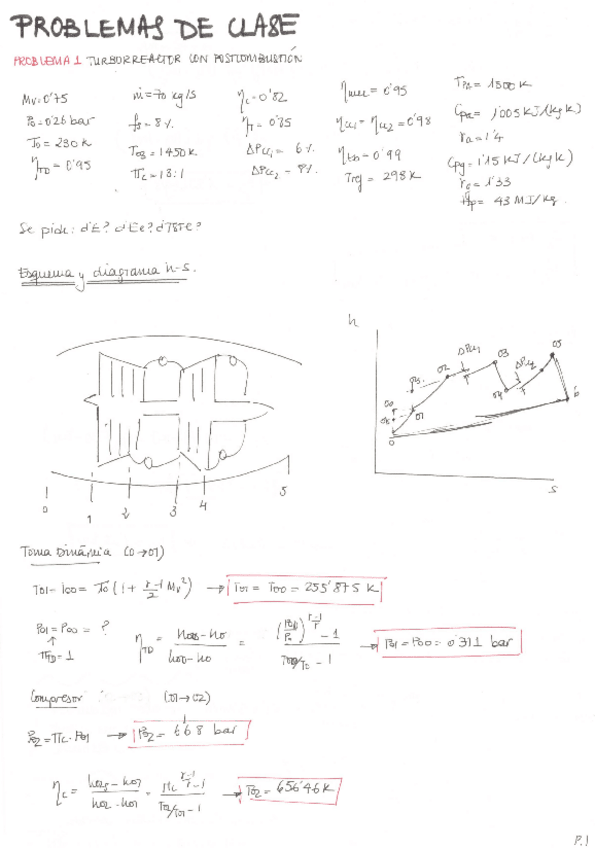 PROBLEMAS DE CLASE
PROBLEMA 1 TURBORREACTOR CON POSTCOMBUSTIÓN
Mv=0'75
P0=0'26 bar
T0 = 230 K
ηTD = 0'95
ṁ=70 kg/s
T03=1450K
πc=13:1
ηc=0'82
ΔPcc1 = 6%
ΔPcc2 = 8%
ηmec = 0'95
ηcc1 = ηcc2 = 0'98
Tref = 298K
Cpa = 1'005 KJ/(kgK)
γa=1'4
Cpg=1'15 KJ/(kgK)
γg=1'33
43 MJ/kg
Se pide: ¿E? ¿Ee? ¿TSFC?
Esquema y diagrama h-s.
h
02
ΔPcc1
03
ΔPcc2
05
04
01
0
6
s
0
1
2
3
4
5
Toma Dinámica (0→01)
T01=T00= T0 (1 + γ-1/2 Mv²) → T01 = T00 = 255'875 K
P01=P00 = ?
πTD=1
ηTD = h00s-h0/h00-h0 = (P00/P0)^γ-1/γ - 1/T00/T0 - 1 → P01=P00=0'311 bar
Compresor (01→02)
P02=πc·P01 → P02= bar
ηc = h02s-h01/h02-h01 = πc^γ-1/γ-1/T02/T01-1 → T02= 656'46K
P.1